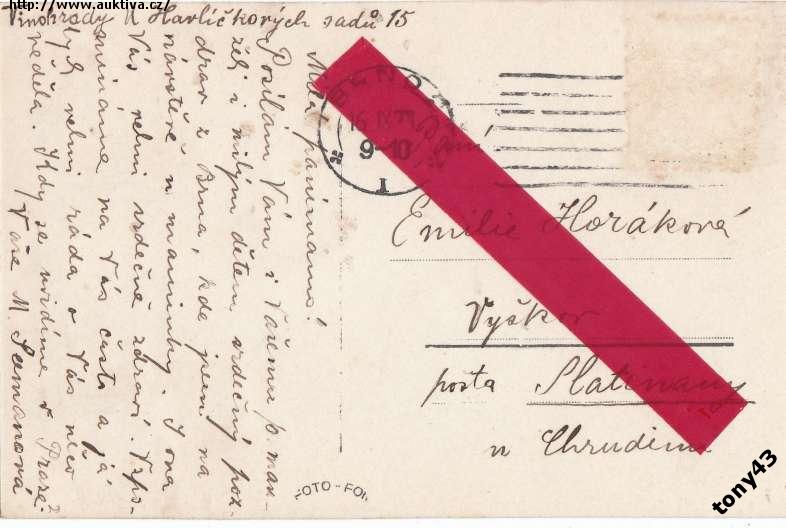 http://www.auktiva.cz/
Vinohrady U Havlíčkových sadů 15
Milá panímámo!
Posílám Vám i Vašemu p. man-
želi i milým dětem srdečný poz-
drav z Brna, kde jsem na
návštěvě u maminky. I ona
Vás velmi srdečně zdraví. Vzpo-
mínáme na Vás často a já
bych velmi ráda o Vás něco
věděla. Kdy se uvidíme v Praze?
Vaše M.
BRNO
16 IX
9-10
1
Paní
Emilie Horáková
Vyškov
pošta Slatinany
u Chrudimi
FOTO-FON
tony43